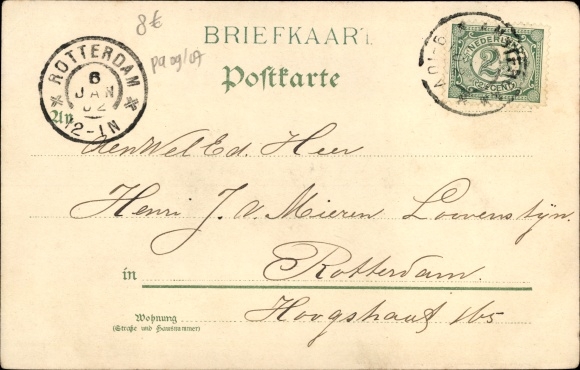 8€
BRIEFKAART
pq 09/07
Postkarte
ROTTERDAM
6
JAN
02
12-1N
An
NEDERLAND
2½
CENT
Den Wel Ed. Heer
Henri J. v. Mieren Lowenstÿn.
in Rotterdam.
Wohnung
(Straße und Hausnummer)
Hoogstraat 165